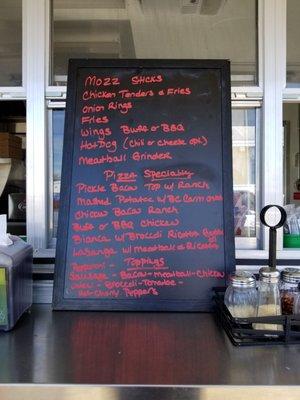 Mozz Sticks
Chicken Tenders & Fries
Onion Rings
Fries
Wings Buff or BBQ
Hot Dog (Chili or cheese opt.)
Meatball Grinder
Pizza Specialty
Pickle Bacon Top w/ Ranch
Mashed Potatoe w/ BC Carm onion
Chicken Bacon Ranch
Buff or BBQ Chicken
Bianca w/ Broccoli Ricotta
Lasanga w/ Meatball & Ricotta
Pepperoni - Toppings
Sausage - Bacon - Meatball - Chicken
Onion - Broccoli - Tomatoe -
Hot Cherry Peppers